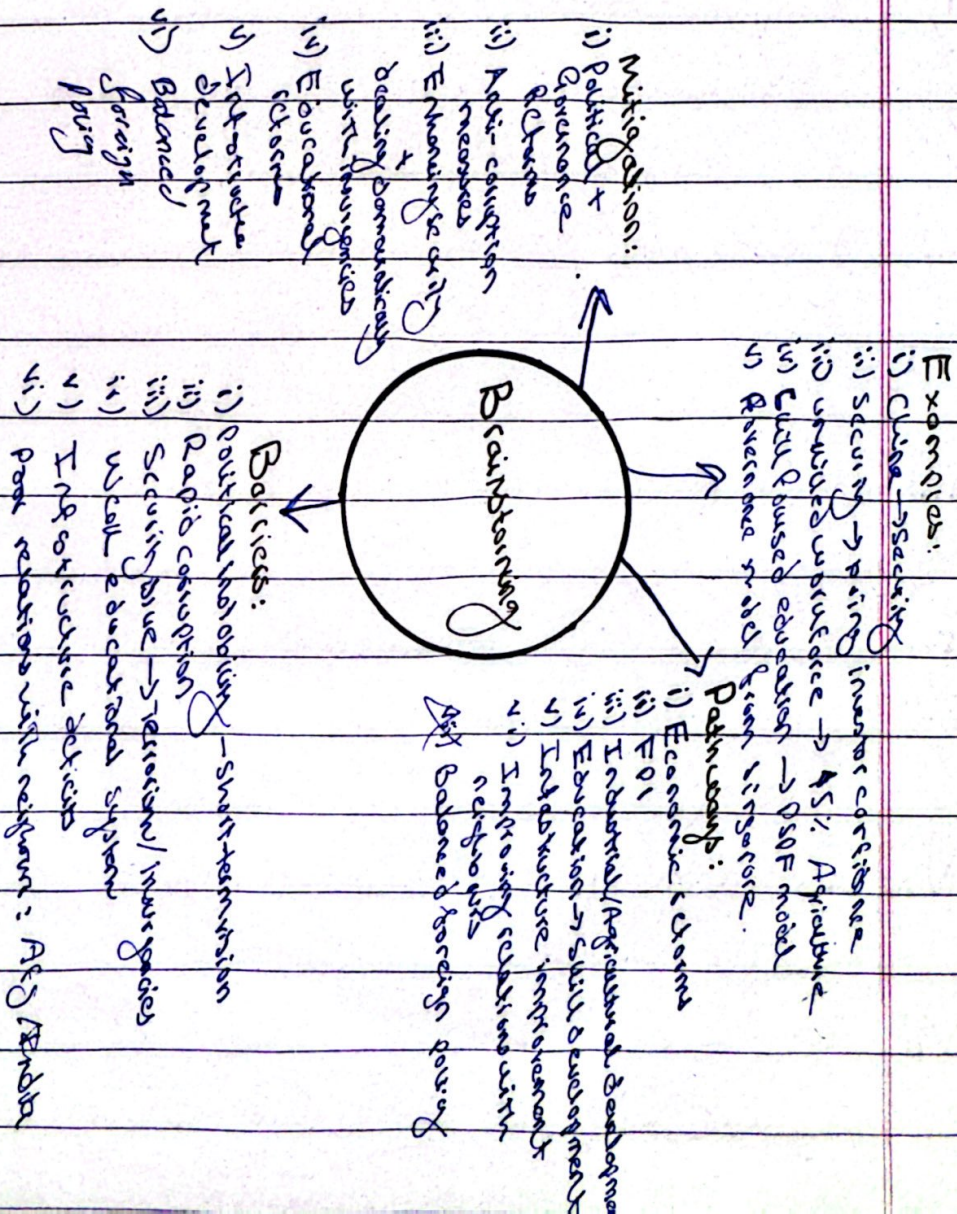 Examples:
i) China → Security
ii) Security → investor confidence
iii) unskilled workforce → 45% Agriculture
iv) Skill focused education → model
v) Governance model from Singapore.
Pathways:
i) Economic reforms
ii) FDI
iii) Industrial/Agricultural developme
iv) Education → Skill development
v) Infrastructure improvement
vi) Improving relations with
neighbours
Balanced foreign policy
Brainstorming
Mitigation:
i) Political +
Governance
Reforms
ii) Anti-corruption
measures
iii) Enhancing security
+
dealing
with insurgencies
iv) Educational
reforms
v) Infrastructure
development
vi) Balanced
foreign
policy
Barriers:
i) Political instability - Short-term vision
ii) Rapid corruption
iii) Security issue → terrorism/insurgencies
iv) Weak educational system
v) Infrastructure deficits
vi) Poor relations with neighbours: Afg/India